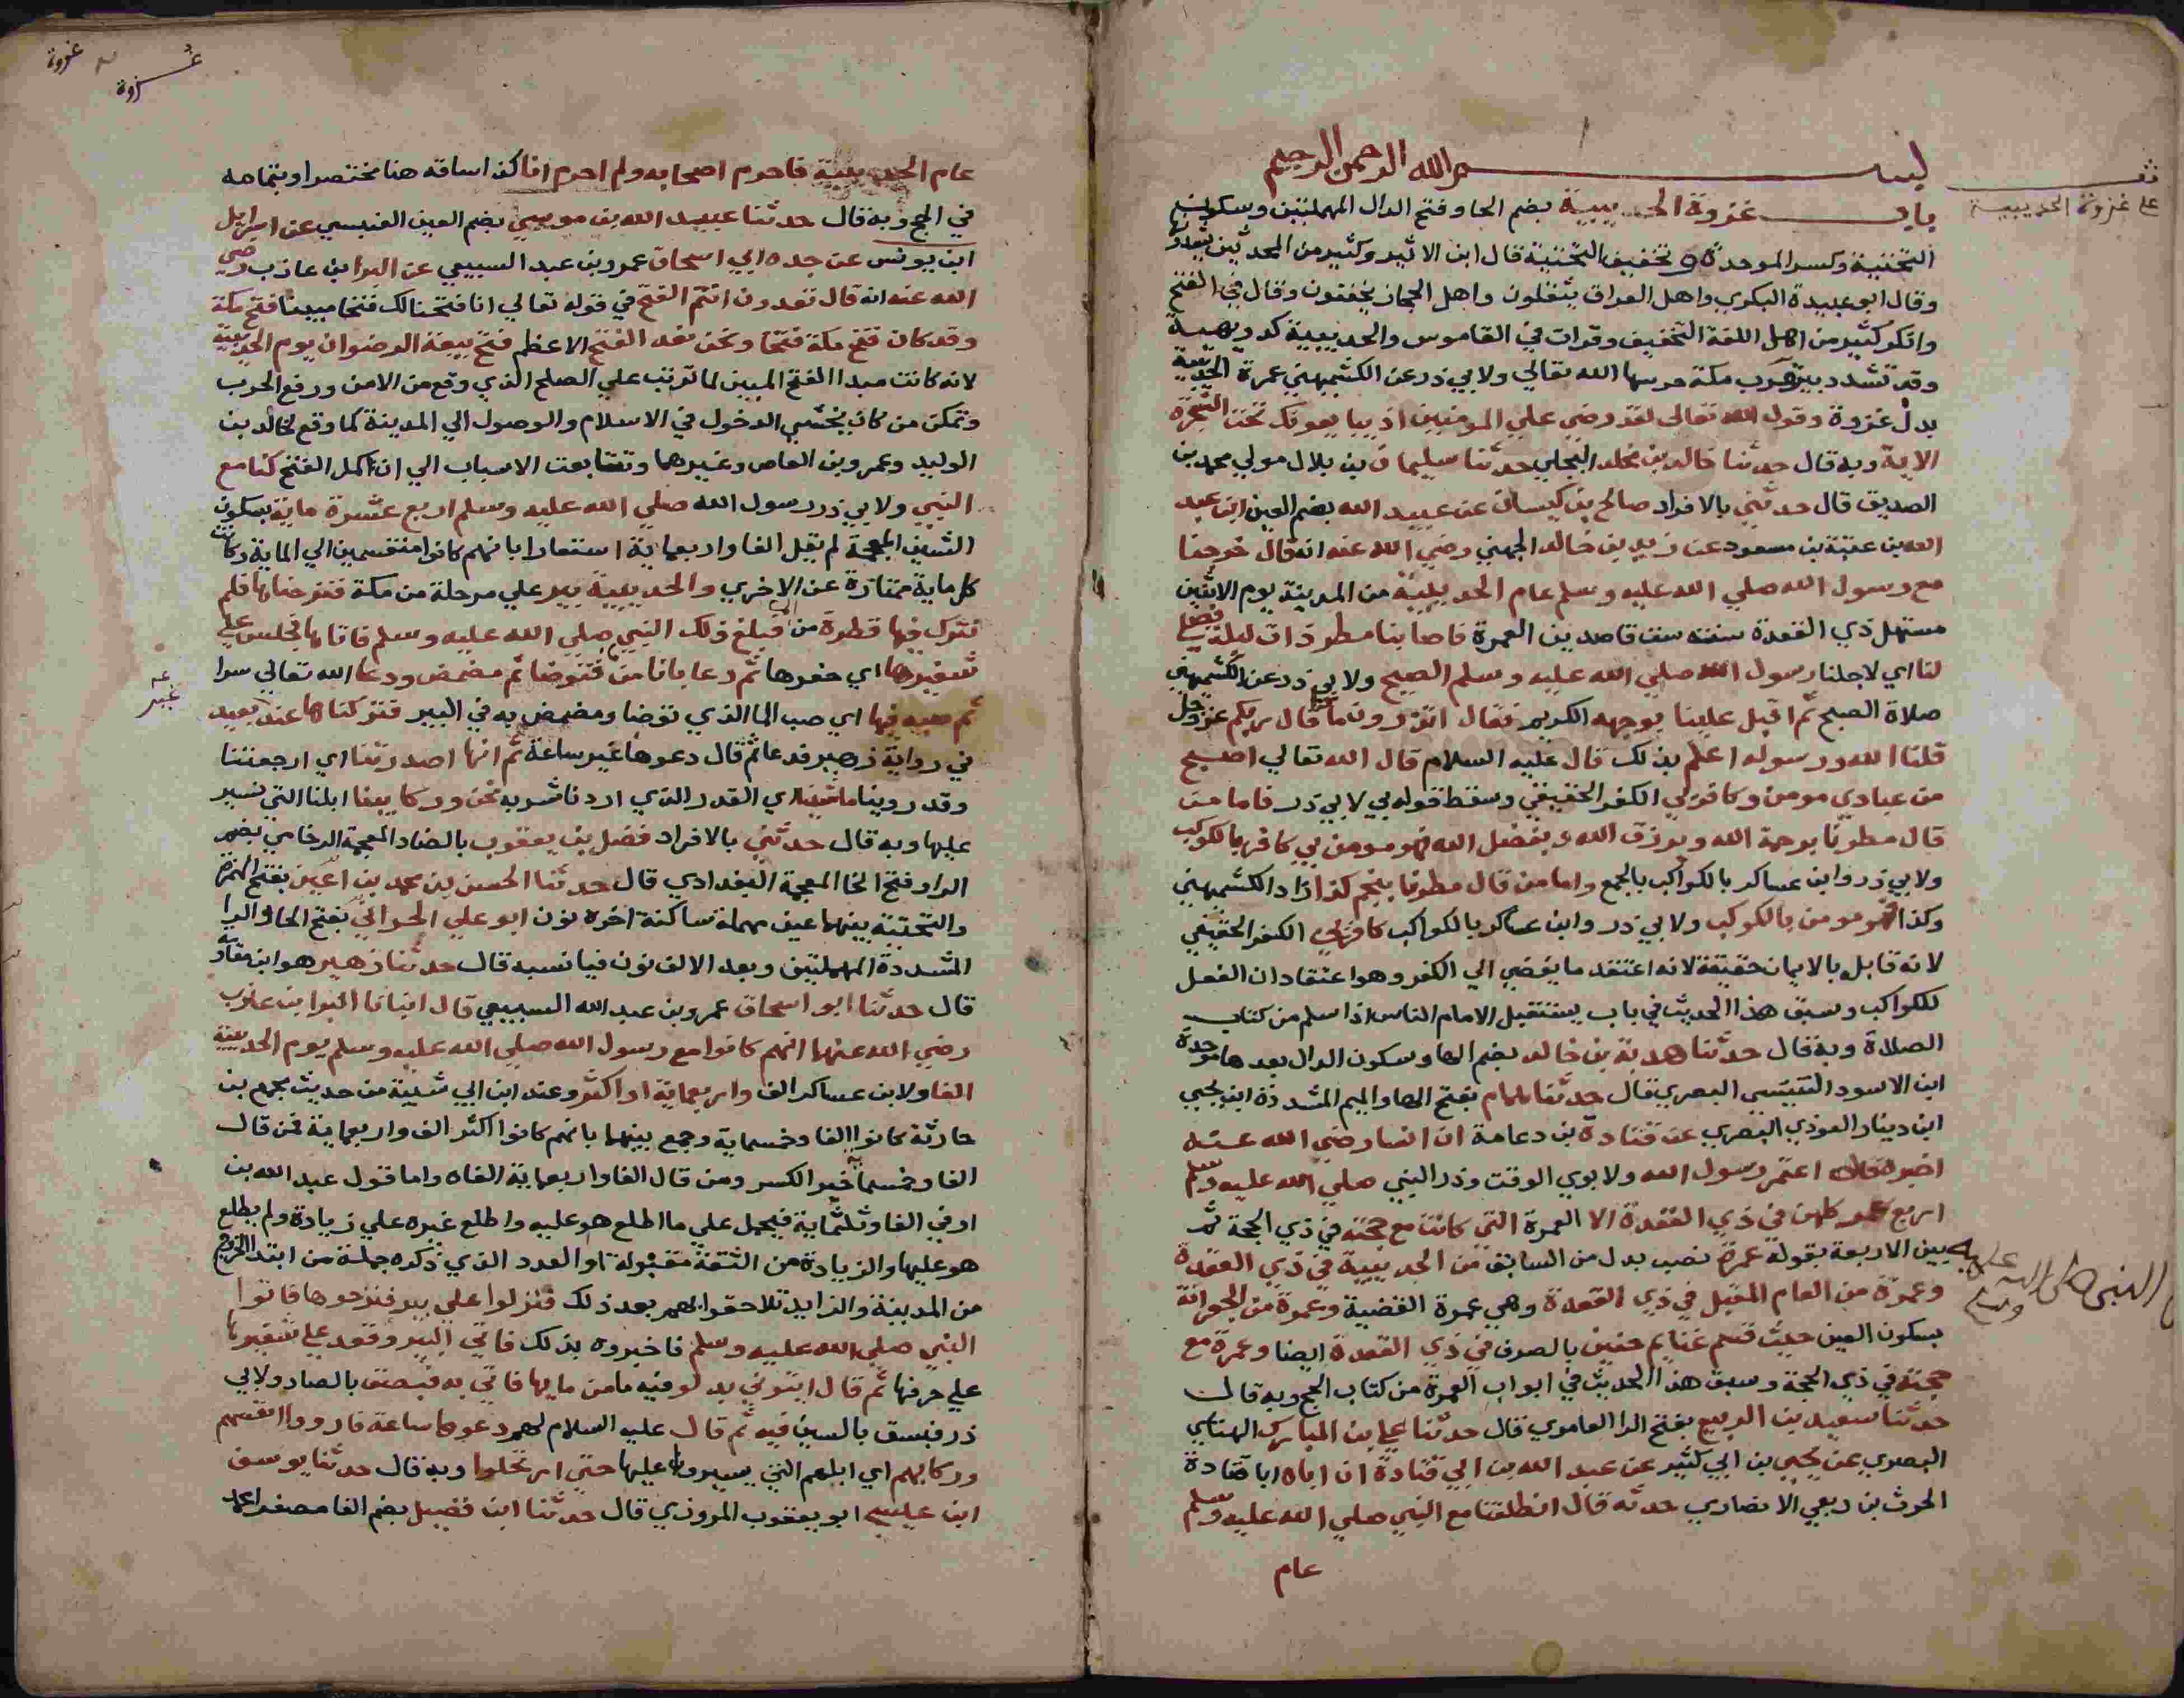 بسم الله الرحمن الرحيم
باب غزوة الحديبية بضم الحا وفتح الدال المهملتين وسكون
التحتية وكسر الموحدة وتخفيف التحتية قال ابن الاثير وكثير من المحدثين يشددونها
وقال ابو عبيدة البكري واهل العراق يثقلون واهل الحجاز يخففون وقال في الفتح
وانكر كثير من اهل اللغة التخفيف وقرات في القاموس والحديبية كدويهية
وقد تشدد بير قرب مكة حرسها الله تعالي ولابي ذر عن الكشميهني عمرة الحديبية
بدل غزوة وقول الله تعالى لقد رضي الله علي المومنين اذ يبايعونك تحت الشجرة
الاية وبه قال حدثنا خالد بن مخلد البجلي حدثنا سليمان بن بلال مولي محمد بن
الصديق قال حدثني بالافراد صالح بن كيسان عن عبيد الله بضم العين ابن عبد
الله بن عتبة بن مسعود عن زيد بن خالد الجهني رضي الله عنه انه قال خرجنا
مع رسول الله صلي الله عليه وسلم عام الحديبية من المدينة يوم الاثنين
مستهل ذي القعدة سنة ست قاصدين العمرة فاصابنا مطر ذات ليلة فصلي
لنا اي لاجلنا رسول الله صلي الله عليه وسلم الصبح ولابي ذر عن الكشميهني
صلاة الصبح ثم اقبل علينا بوجهه الكريم فقال اتدرون ماذا قال ربكم عز وجل
قلنا الله ورسوله اعلم بذلك قال عليه السلام قال الله تعالي اصبح
من عبادي مومن وكافر بي الكفر الحقيقي وسقط قوله بي لابي ذر فاما من
قال مطرنا برحمة الله وبرزق الله وبفضل الله فهو مومن بي كافر بالكوكب
ولابي ذر وابن عساكر بالكواكب بالجمع واما من قال مطرنا بنجم كذا زاد الكشميهني
وكذا فهو مومن بالكوكب ولابي ذر وابن عساكر بالكواكب كافر بي الكفر الحقيقي
لانه قابل بالايمان حقيقة لانه اعتقد ما يفضي الي الكفر وهو اعتقاد ان الفعل
للكواكب وسبق هذا الحديث في باب يستقبل الامام الناس اذا سلم من كتاب
الصلاة وبه قال حدثنا هدبة بن خالد بضم الها وسكون الدال بعدها موحدة
ابن الاسود القيسي البصري قال حدثنا همام بفتح الها والميم المشددة ابن يحيي
ابن دينار العوذي البصري عن قتادة بن دعامة ان انسا رضي الله عنه
اخبره قال اعتمر رسول الله ولابوي الوقت وذر النبي صلي الله عليه وسلم
اربع عمر كلهن في ذي القعدة الا العمرة التي كانت مع حجته في ذي الحجة ثم
بين الاربعة بقوله عمرة نصب بدل من السابق من الحديبية في ذي القعدة
وعمرة من العام المقبل في ذي القعدة وهي عمرة القضية وعمرة من الجعرانة
بسكون العين حيث قسم غنايم حنين بالصرف في ذي القعدة ايضا وعمرة مع
حجته في ذي الحجة وسبق هذا الحديث في ابواب العمرة من كتاب الحج وبه قال
حدثنا سعيد بن الربيع بفتح الرا العامري قال حدثنا علي بن المبارك الهنابي
البصري عن يحيي بن ابي كثير عن عبد الله بن ابي قتادة ان اباه ابا قتادة
الحرث بن ربعي الانصاري حدثه قال انطلقنا مع النبي صلي الله عليه وسلم
عام
على غزوة الحديبية
النبي صلى الله عليه وسلم
غزوة
غزوة
عام الحديبية فاحرم اصحابه ولم احرم انا كذا ساقه هنا مختصرا وبتمامه
في الحج وبه قال حدثنا عبيد الله بن موسي بضم العين العنبسي عن اسرايل
ابن يونس عن جده ابي اسحاق عمرو بن عبد السبيعي عن البرا بن عازب رضي
الله عنه انه قال تعدون انتم الفتح في قوله تعالي انا فتحنا لك فتحا مبينا فتح مكة
وقد كان فتح مكة فتحا ونحن نعد الفتح الاعظم فتح بيعة الرضوان يوم الحديبية
لانه كانت مبدا الفتح المبين لما ترتب علي الصلح الذي وقع من الامن ورفع الحرب
وتمكن من كان يخشي الدخول في الاسلام والوصول الي المدينة كما وقع لخالد بن
الوليد وعمرو بن العاص وغيرهما وتتابعت الاسباب الي ان اكمل الفتح كنا مع
النبي ولابي ذر رسول الله صلي الله عليه وسلم اربع عشرة ماية بسكون
الشين المعجمة لم يقل الفا واربعماية استشعارا بانهم كانوا منقسمين الي الماية وكانت
كل ماية ممتازة عن الاخري والحديبية بير علي مرحلة من مكة فنزحناها فلم
نترك فيها قطرة من الما فبلغ ذلك النبي صلي الله عليه وسلم فاتاها فجلس علي
شفيرها اي حفرها ثم دعا بانا من فتوضا ثم مضمض ودعا الله تعالي سرا
ثم صبه فيها اي صب الما الذي توضا ومضمض به في البير فتركناها عند بعيد
في رواية زهير فدعا ثم قال دعوها غير ساعة ثم انها اصدرتنا اي ارجعتنا
وقد روينا ما شينا اي القدر الذي اردنا شربه نحن وركابينا ابلنا التي نسير
عليها وبه قال حدثني بالافراد فضل بن يعقوب بالضاد المعجمة الرخامي بضم
الرا وفتح الخا المعجمة البغدادي قال حدثنا الحسن بن محمد بن اعين بفتح الهمزة
والتحتية بينهما عين مهملة ساكنة اخره نون ابو علي الحراني بفتح الحا والرا
المشددة المهملتين وبعد الالف نون فيا نسبه قال حدثنا زهير هو ابن معاوية
قال حدثنا ابو اسحاق عمرو بن عبد الله السبيعي قال انبانا البرا بن عازب
رضي الله عنهما انهم كانوا مع رسول الله صلي الله عليه وسلم يوم الحديبية
الفا ولابن عساكر الف واربعماية او اكثر وعند ابن ابي شيبة من حديث مجمع بن
حارثة كانوا الفا وخمسماية وجمع بينهما بانهم كانوا اكثر الف واربعماية فمن قال
الفا وخمسماية جبر الكسر ومن قال الفا واربعماية الغاه واما قول عبد الله بن
اوفي الفا وثلثماية فيحمل علي ما اطلع هو عليه واطلع غيره علي زيادة ولم يطلع
هو عليها والزيادة من الثقة مقبولة او العدد الذي ذكره جملة من ابتدا الخروج
من المدينة والزايد تلاحقوا بهم بعد ذلك فنزلوا علي بير فنزحوها فاتوا
النبي صلي الله عليه وسلم فاخبروه بذلك فاتي البير وقعد علي شفيرها
علي حرفها ثم قال ايتوني بدلو فيه ما من مايها فاتي به فبصق بالصاد ولابي
ذر فبسق بالسين فيه ثم قال عليه السلام لهم دعوها ساعة فارووا انفسهم
وركابهم اي ابلهم التي يسيرون عليها حتي ارتحلوا وبه قال حدثنا يوسف
ابن عيسي ابو يعقوب المروزي قال حدثنا ابن فضيل بضم الفا مصغرا محمد